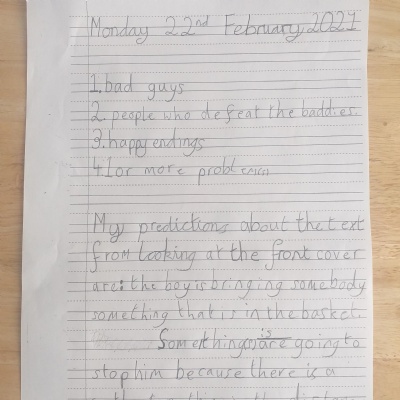 Monday 22nd February 2021
1. bad guys
2. people who defeat the baddies.
3. happy endings
4. 1 or more problems
My predictions about the text
from looking at the front cover
are: the boy is bringing somebody
something that is in the basket.
Something is going to
stop him because there is a